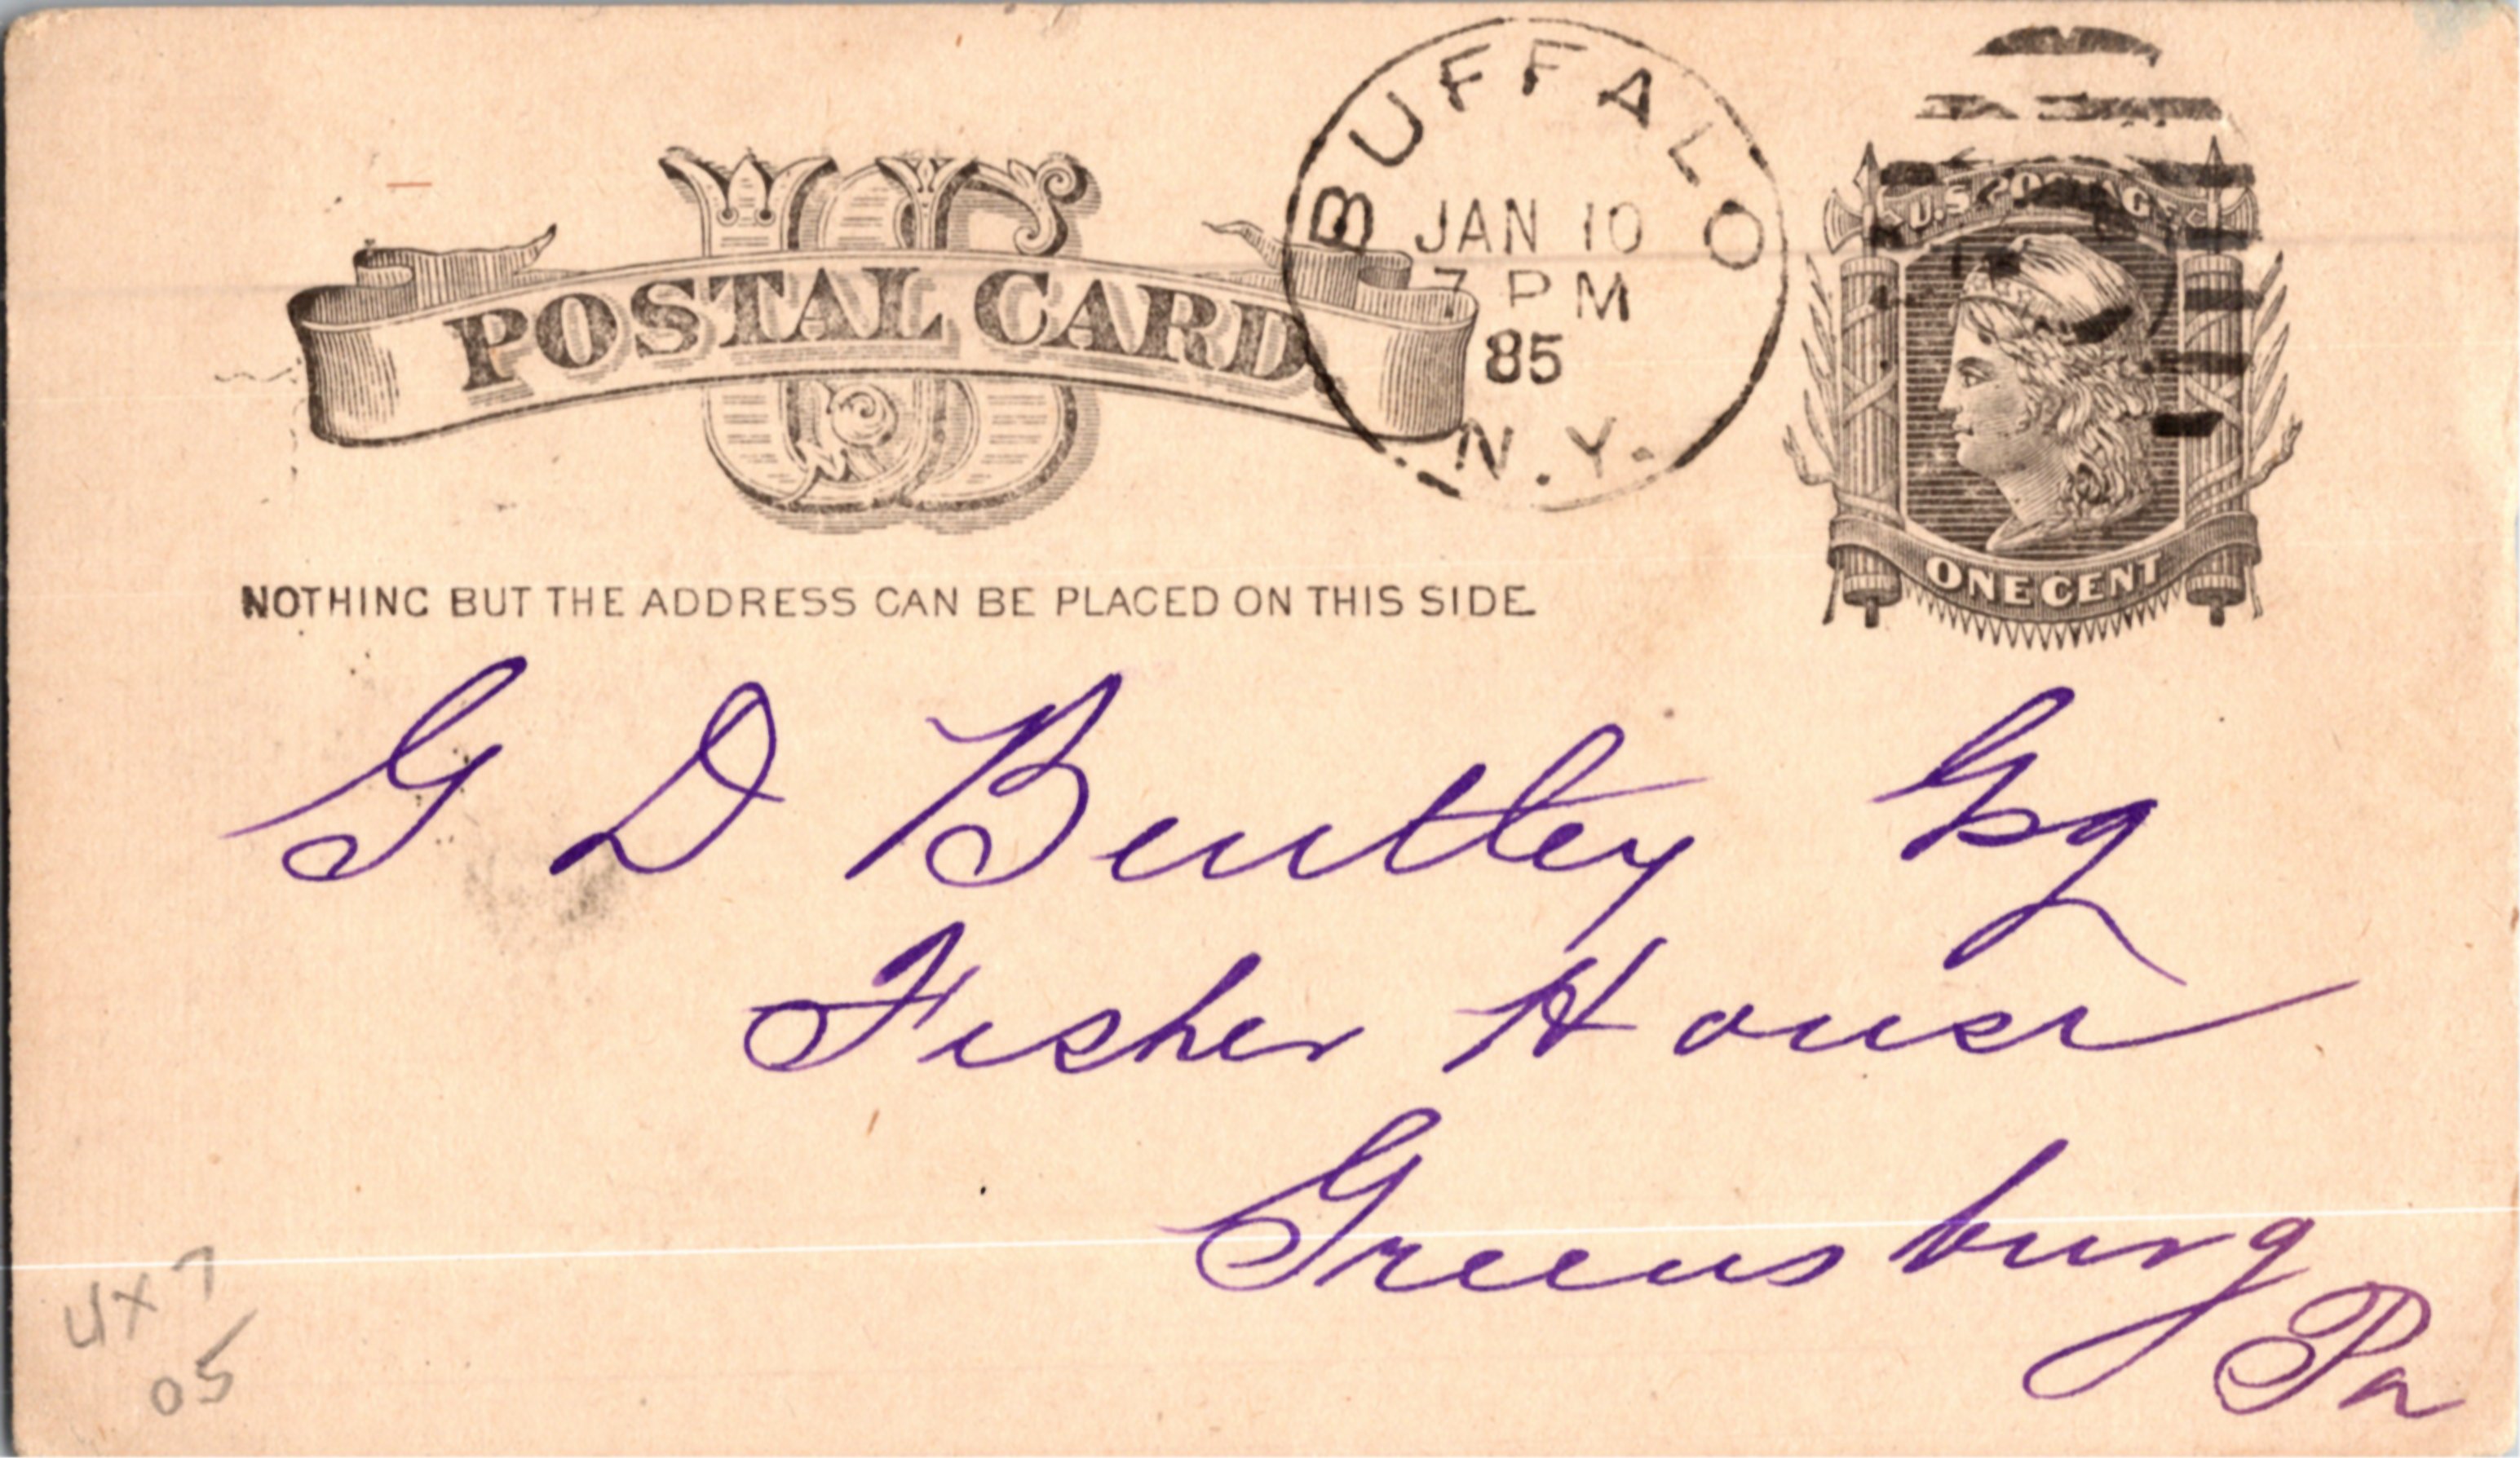 US
POSTAL CARD
BUFFALO
JAN 10
7 PM
85
N.Y.
U.S. POSTAGE
ONE CENT
NOTHING BUT THE ADDRESS CAN BE PLACED ON THIS SIDE.
G D Bentley Esq
Fisher House
Greensburg
Pa
UX7
05